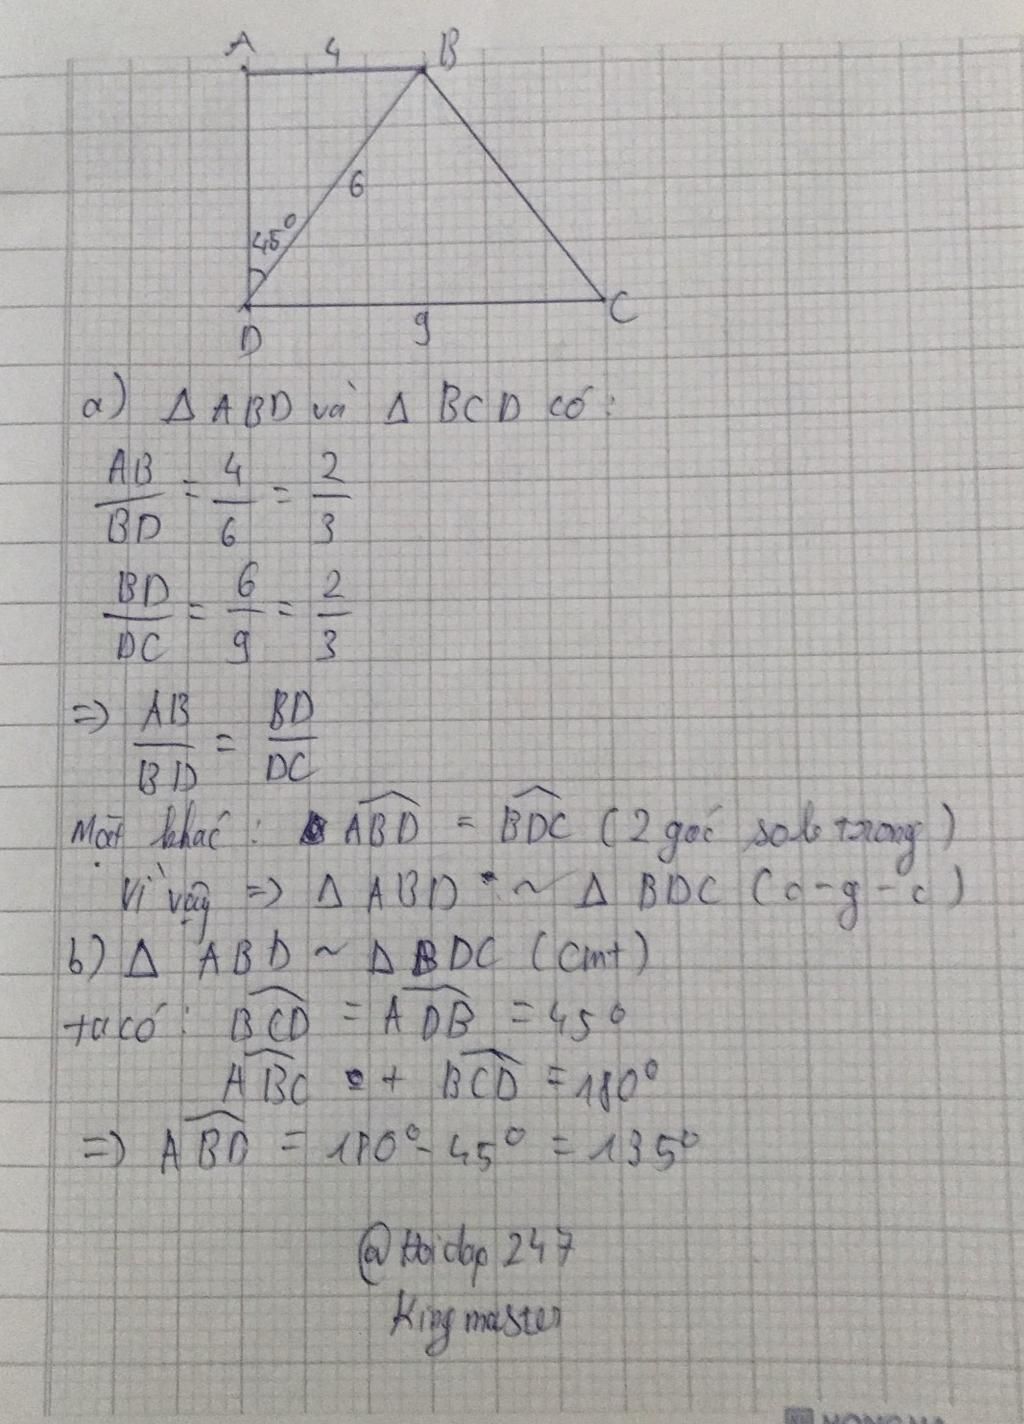 A 4 B
6
45°
D 9 C
a) Δ ABD và Δ BCD có:
AB/BD = 4/6 = 2/3
BD/DC = 6/9 = 2/3
=> AB/BD = BD/DC
Mặt khác: \widehat{ABD} = \widehat{BDC} (2 góc sole trong)
Vì vậy => Δ ABD ~ Δ BDC (c-g-c)
b) Δ ABD ~ Δ BDC (cmt)
ta có: \widehat{BCD} = \widehat{ADB} = 45°
\widehat{ABC} + \widehat{BCD} = 180°
=> \widehat{ABD} = 180° - 45° = 135°
@Hoidap 247
King master